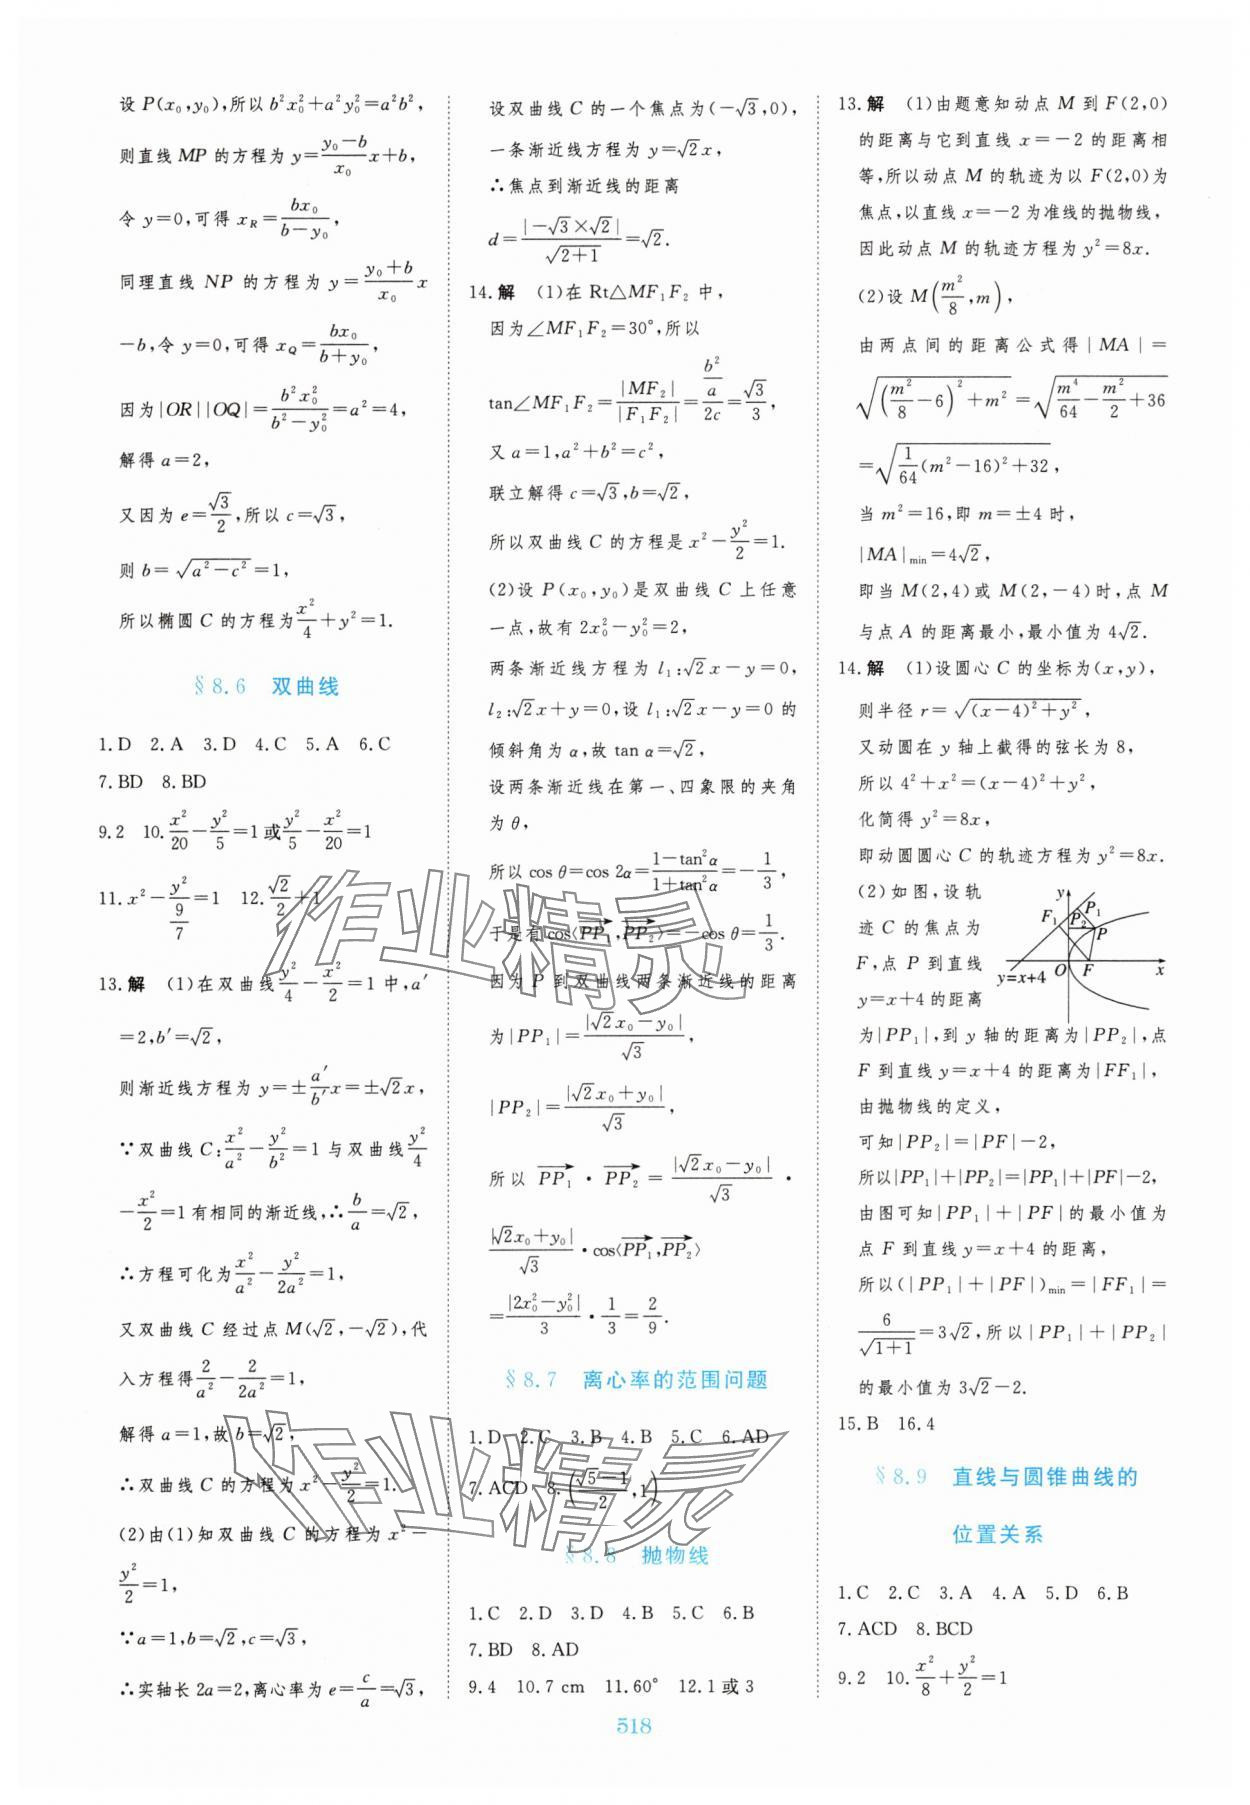 设 P(x₀,y₀),所以 b²x₀²+a²y₀²=a²b²,
则直线 MP 的方程为 y=\frac{y₀-b}{x₀}x+b,
令 y=0,可得 x_R=\frac{bx₀}{b-y₀},
同理直线 NP 的方程为 y=\frac{y₀+b}{x₀}x
-b,令 y=0,可得 x_Q=\frac{bx₀}{b+y₀},
因为|OR||OQ|=\frac{b²x₀²}{b²-y₀²}=a²=4,
解得 a=2,
又因为 e=\frac{√3}{2},所以 c=√3,
则 b=√(a²-c²)=1,
所以椭圆 C 的方程为\frac{x²}{4}+y²=1.
§8.6 双曲线
1.D 2.A 3.D 4.C 5.A 6.C
7.BD 8.BD
9.2 10.\frac{x²}{20}-\frac{y²}{5}=1或\frac{y²}{5}-\frac{x²}{20}=1
11.x²-\frac{y²}{\frac{9}{7}}=1 12.\frac{√2}{2}+1
13.解 (1)在双曲线\frac{y²}{4}-\frac{x²}{2}=1中,a′
=2,b′=√2,
则渐近线方程为 y=±\frac{a′}{b′}x=±√2x,
∵双曲线 C:\frac{x²}{a²}-\frac{y²}{b²}=1 与双曲线\frac{y²}{4}
-\frac{x²}{2}=1有相同的渐近线,∴\frac{b}{a}=√2,
∴方程可化为\frac{x²}{a²}-\frac{y²}{2a²}=1,
又双曲线 C 经过点 M(√2,-√2),代
入方程得\frac{2}{a²}-\frac{2}{2a²}=1,
解得 a=1,故 b=√2,
∴双曲线 C 的方程为 x²-\frac{y²}{2}=1.
(2)由(1)知双曲线 C 的方程为 x²-
\frac{y²}{2}=1,
∵a=1,b=√2,c=√3,
∴实轴长 2a=2,离心率为 e=\frac{c}{a}=√3,
设双曲线 C 的一个焦点为(-√3,0),
一条渐近线方程为 y=√2x,
∴焦点到渐近线的距离
d=\frac{|-√3×√2|}{√(2+1)}=√2.
14.解 (1)在 Rt△MF₁F₂ 中,
因为∠MF₁F₂=30°,所以
tan∠MF₁F₂=\frac{|MF₂|}{|F₁F₂|}=\frac{\frac{b²}{a}}{2c}=\frac{√3}{3},
又 a=1,a²+b²=c²,
联立解得 c=√3,b=√2,
所以双曲线 C 的方程是 x²-\frac{y²}{2}=1.
(2)设 P(x₀,y₀)是双曲线 C 上任意
一点,故有 2x₀²-y₀²=2,
两条渐近线方程为 l₁:√2x-y=0,
l₂:√2x+y=0,设 l₁:√2x-y=0 的
倾斜角为 α,故 tan α=√2,
设两条渐近线在第一、四象限的夹角
为 θ,
所以 cos θ=cos 2α=\frac{1-tan²α}{1+tan²α}=-\frac{1}{3},
于是有 cos⟨\overrightarrow{PP₁},\overrightarrow{PP₂}⟩=-cos θ=\frac{1}{3}.
因为 P 到双曲线两条渐近线的距离
为|PP₁|=\frac{|√2x₀-y₀|}{√3},
|PP₂|=\frac{|√2x₀+y₀|}{√3},
所以 \overrightarrow{PP₁}·\overrightarrow{PP₂}=\frac{|√2x₀-y₀|}{√3}·
\frac{|√2x₀+y₀|}{√3}·cos⟨\overrightarrow{PP₁},\overrightarrow{PP₂}⟩
=\frac{|2x₀²-y₀²|}{3}·\frac{1}{3}=\frac{2}{9}.
§8.7 离心率的范围问题
1.D 2.C 3.B 4.B 5.C 6.AD
7.ACD 8.(\frac{√5-1}{2},1)
§8.8 抛物线
1.C 2.D 3.D 4.B 5.C 6.B
7.BD 8.AD
9.4 10.7 cm 11.60° 12.1或3
13.解 (1)由题意知动点 M 到 F(2,0)
的距离与它到直线 x=-2 的距离相
等,所以动点 M 的轨迹为以 F(2,0)为
焦点,以直线 x=-2 为准线的抛物线,
因此动点 M 的轨迹方程为 y²=8x.
(2)设 M(\frac{m²}{8},m),
由两点间的距离公式得|MA|=
√((\frac{m²}{8}-6)²+m²)=√(\frac{m⁴}{64}-\frac{m²}{2}+36)
=√(\frac{1}{64}(m²-16)²+32),
当 m²=16,即 m=±4 时,
|MA|_min=4√2,
即当 M(2,4)或 M(2,-4)时,点 M
与点 A 的距离最小,最小值为 4√2.
14.解 (1)设圆心 C 的坐标为(x,y),
则半径 r=√((x-4)²+y²),
又动圆在 y 轴上截得的弦长为 8,
所以 4²+x²=(x-4)²+y²,
化简得 y²=8x,
即动圆圆心 C 的轨迹方程为 y²=8x.
(2)如图,设轨
迹 C 的焦点为
F,点 P 到直线
y=x+4 的距离
y
F₁
P₁
P₂
P
O
F
x
y=x+4
为|PP₁|,到 y 轴的距离为|PP₂|,点
F 到直线 y=x+4 的距离为|FF₁|,
由抛物线的定义,
可知|PP₂|=|PF|-2,
所以|PP₁|+|PP₂|=|PP₁|+|PF|-2,
由图可知|PP₁|+|PF|的最小值为
点 F 到直线 y=x+4 的距离,
所以(|PP₁|+|PF|)_min=|FF₁|=
\frac{6}{√(1+1)}=3√2,所以|PP₁|+|PP₂|
的最小值为 3√2-2.
15.B 16.4
§8.9 直线与圆锥曲线的
位置关系
1.C 2.C 3.A 4.A 5.D 6.B
7.ACD 8.BCD
9.2 10.\frac{x²}{8}+\frac{y²}{2}=1
518
作业精灵
作业精灵